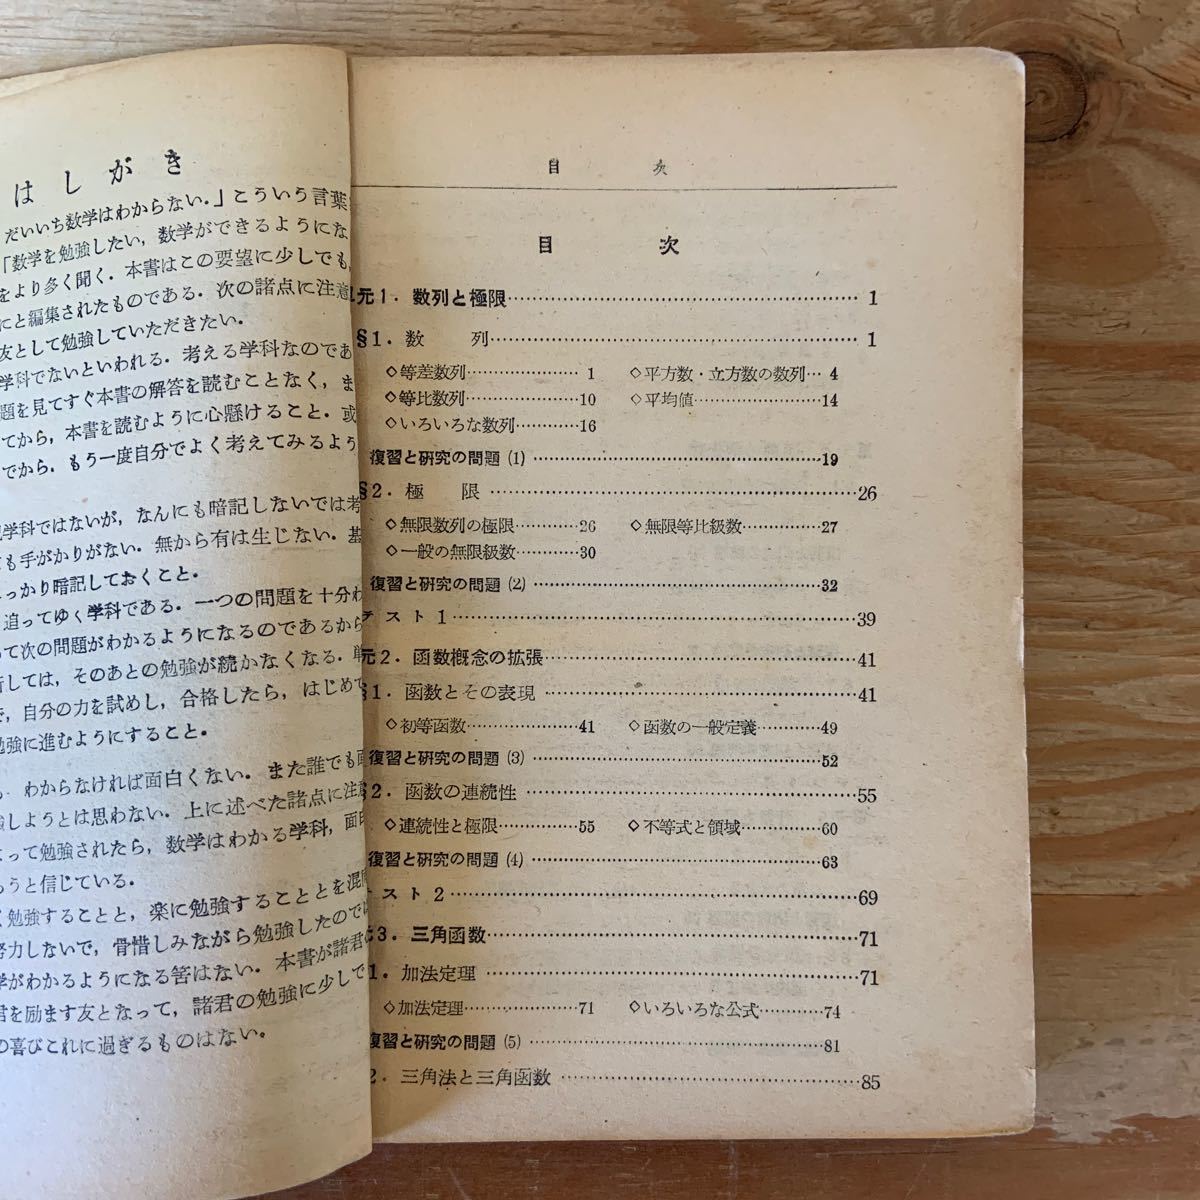 はしがき
だいいち数学はわからない.」こういう言葉
「数学を勉強したい, 数学ができるようにな
をより多く聞く. 本書はこの要望に少しでも,
にと編集されたものである. 次の諸点に注意
友として勉強していただきたい.
学科でないといわれる. 考える学科なのであ
題を見てすぐ本書の解答を読むことなく, ま
てから, 本書を読むように心懸けること. 或
でから. もう一度自分でよく考えてみるよう
学科ではないが, なんにも暗記しないでは考
も手がかりがない. 無から有は生じない. 基
っかり暗記しておくこと.
追ってゆく学科である. 一つの問題を十分わ
て次の問題がわかるようになるのであるから
しては, そのあとの勉強が続かなくなる. 単
で, 自分の力を試めし, 合格したら, はじめて
勉強に進むようにすること.
わからなければ面白くない. また誰でも面
強しようとは思わない. 上に述べた諸点に注意
よって勉強されたら, 数学はわかる学科, 面白
ろうと信じている.
く勉強することと, 楽に勉強することとを混同
努力しないで, 骨惜しみながら勉強したのでは
学がわかるようになる筈はない. 本書が諸君
君を励ます友となって, 諸君の勉強に少しで
の喜びこれに過ぎるものはない.
目 次
目 次
元1. 数列と極限…… 1
§1. 数 列…… 1
◇等差数列…… 1 ◇平方数・立方数の数列… 4
◇等比数列……10 ◇平均値……14
◇いろいろな数列……16
復習と研究の問題 (1)……19
§2. 極 限……26
◇無限数列の極限……26 ◇無限等比級数……27
◇一般の無限級数……30
復習と研究の問題 (2)……32
テスト1……39
元2. 函数概念の拡張……41
§1. 函数とその表現……41
◇初等函数……41 ◇函数の一般定義……49
復習と研究の問題 (3)……52
§2. 函数の連続性……55
◇連続性と極限……55 ◇不等式と領域……60
復習と研究の問題 (4)……63
テスト2……69
元3. 三角函数……71
1. 加法定理……71
◇加法定理……71 ◇いろいろな公式……74
復習と研究の問題 (5)……81
2. 三角法と三角函数……85